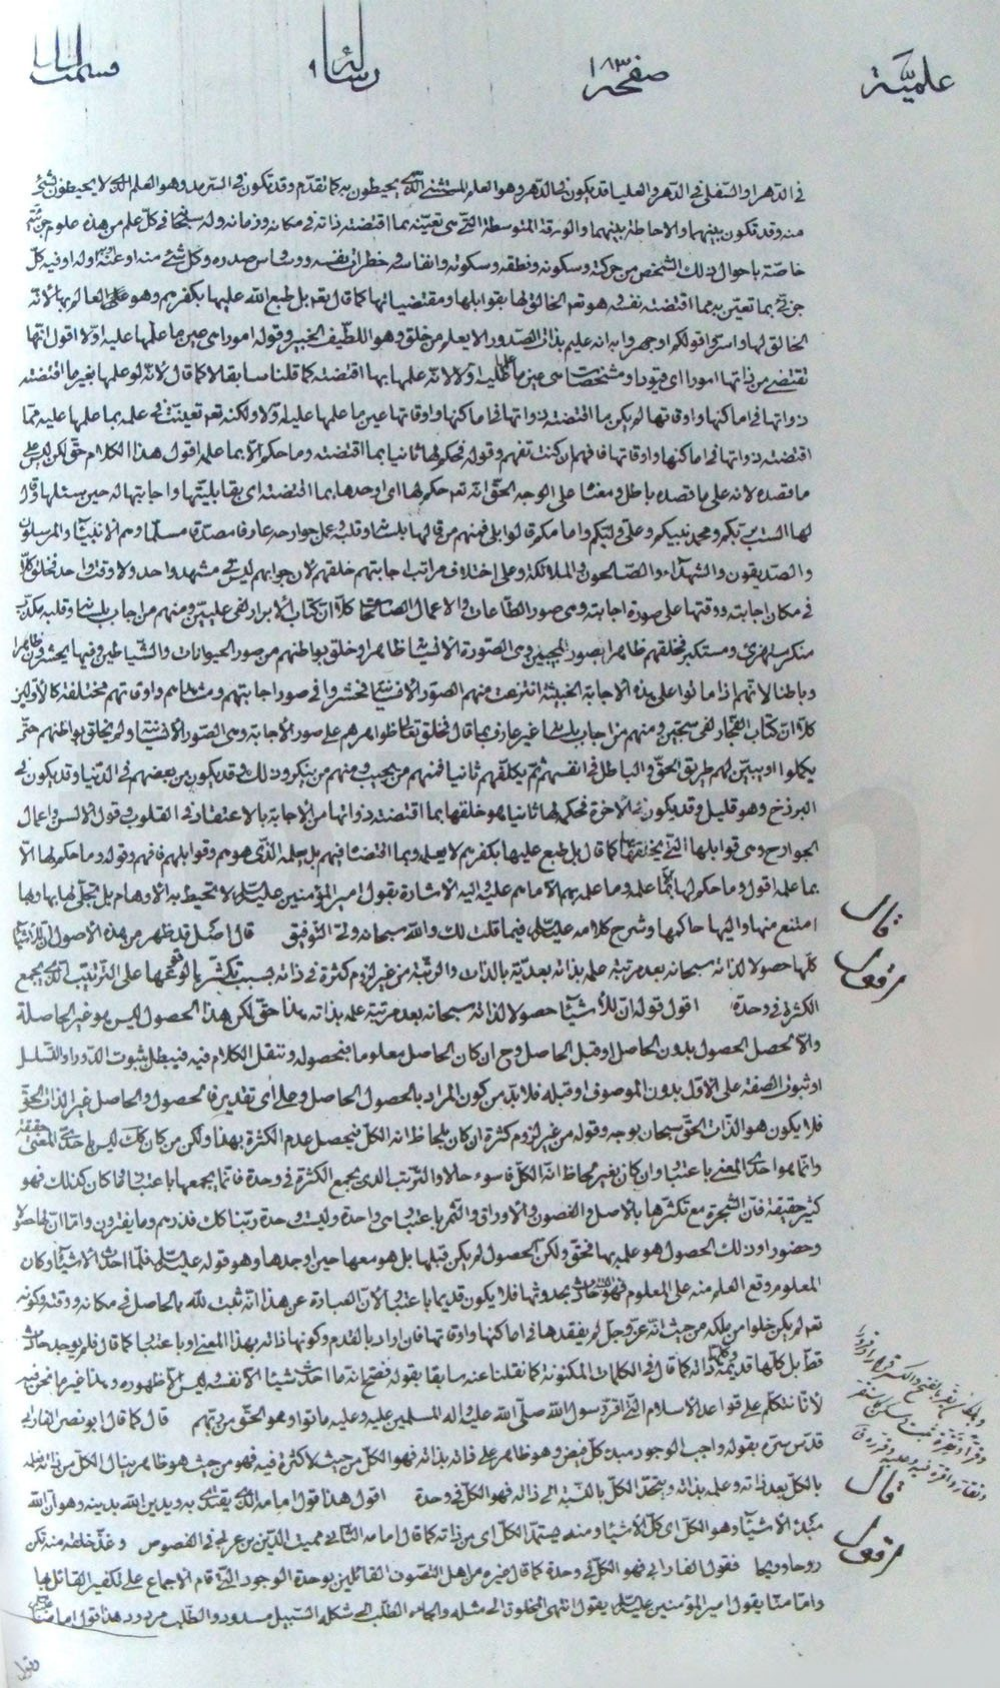 علميّة صفحه ١٨٣ رسالة قسمت
في الدّهر او السّفلى في الدّهر والعليا قد يكون في الدّهر وهو العلم المستثنى الّذي يحيطون به كما تقدّم وقد تكون في السّرمد وهو العلم الّذي لا يحيطون بشئ
منه وقد تكون بينهما والاحاطة بينهما والورقة المتوسطة التي هي تعيّنه بما اقتضته ذاته في مكانه وزمانه وله سبحانه في كلّ علم من هذه علوم جزئيّة
خاصّة باحوال ذلك الشخص من حركته وسكونه ونطقه وسكوته وانفاسه وخطرات نفسه ووسواس صدره وكلّ شئ منه او عنه او له او فيه كلّ
جزئي بما تعيّن به مما اقتضته نفسه وهو تعالى الخالق لها بقوابلها ومقتضياتها كما قال تعالى بل طبع الله عليها بكفرهم وهو تعالى العالم بها لانّه
الخالق لها واسرّوا قولكم او اجهروا به انه عليم بذات الصّدور الا يعلم من خلق وهو اللّطيف الخبير وقوله امورا هي عين ما علمها عليه اوّلا اقول انّها
تقتضي من ذاتها امورا اى قيودا ومشخصات هي عين ما علمها عليه اوّلا لانّه علمها بما اقتضته كما قلنا سابقا لا كما قال لانّه لو علمها بغير ما اقتضته
ذواتها في اماكنها واوقاتها لم يكن ما اقتضته ذواتها في اماكنها واوقاتها عين ما علمها عليه اوّلا ولكنه تعالى تعيّنت في علمه بما علمها عليه ممّا
اقتضته ذواتها في اماكنها واوقاتها فافهم ان كنت تفهم وقوله فحكم لها ثانيا بما اقتضته وما حكم الّا بما علمه اقول هذا الكلام حقّ لكن ليس على
ما قصده لانه على ما قصده باطل ومعناه على الوجه الحقّ انّه تعالى حكم لها اى اوجدها بما اقتضته اى بقابليّتها واجابتها له حين سئلها وقال
لها الست بربّكم ومحمد نبيكم وعلى وليّكم وامامكم قالوا بلى فمنهم من قالها بلسانه وقلبه وعمل جوارحه عارفا مصدّقا مسلّما وهم الانبياء والمرسلون
والصدّيقون والشهداء والصّالحون والملائكة وعلى اختلاف مراتب اجابتهم خلقهم لان جوابهم ليس في مشهد واحد ولا وقت واحد فخلق كلّا
في مكان اجابته ووقتها على صورة اجابته وهي صور الطّاعات والاعمال الصّالحة كلّا انّ كتاب الابرار لفي علّيّين ومنهم من اجاب بلسانه وقلبه مكذّب
منكر مستهزئ ومستكبر فخلقهم ظاهرا بصور المجيبين وهي الصّورة الانسانية ظاهرا وخلق بواطنهم من صور الحيوانات والشّياطين وفيها يحشرون ظاهرا
وباطنا لانّهم اذا ماتوا على هذه الاجابة الخبيثة انتزعت منهم الصّور الانسانيّة فحشروا في صور اجابتهم ومشاهدهم واوقاتهم مختلفة كالاوّلين
كلّا انّ كتاب الفجّار لفي سجّين ومنهم من اجاب بلسانه غير عارف بما قال فخلق تعالى ظواهرهم على صور الاجابة وهي الصّور الانسانيّة ولم يخلق بواطنهم حتّى
يكملوا او يبيّن لهم طريق الحقّ والباطل في انفسهم ثم يكلّفهم ثانيا فمنهم من يجيب ومنهم من ينكر وذلك قد يكون من بعضهم في الدّنيا وقد يكون في
البرزخ وهو قليل وقد يكون في الاخرة فحكم لها ثانيا هو خلقها بما اقتضته ذواتها من الاجابة بالاعتقاد في القلوب وقول الالسن واعمال
الجوارح وهي قوابلها الّتي يخلقها بها كما قال بل طبع عليها بكفرهم لا بعلمه وبما اقتضاه فيهم بل بعلمه الّذي هو هم وقوابلهم فافهم وقوله وما حكم لها الّا
بما علمه اقول وما حكم لها انّما علمه وما علمه بها الّا ما هم عليه واليه الاشارة بقول امير المؤمنين عليه السلام لا تحيط به الاوهام بل تجلّى لها بها وبها
امتنع منها واليها حاكمها وشرح كلامه عليه السلام فيما قلت لك والله سبحانه ولىّ التّوفيق قال اصل قد ظهر من هذه الاصول انّ للاشياء
كلّها حصولا لذاته سبحانه بعد مرتبة علمه بذاته بعديّة بالذات والرتبة من غير لزوم كثرة في ذاته بسبب تكثّرها لوقوعها على التّرتيب الّذي يجمع
الكثرة في وحدة اقول قوله ان للاشياء حصولا لذاته سبحانه بعد مرتبة علمه بذاته هذا حقّ لكن هذا الحصول ليس هو غير الحاصلة
والّا لحصل الحصول بدون الحاصل او قبل الحاصل وح ان كان الحاصل معلوما فبحصوله وننقل الكلام فيه فيبطل بثبوت الدّور او التّسلسل
او ثبوت الصفة على الاوّل بدون الموصوف او قبله فلا بدّ من كون المراد بالحصول الحاصل وعلى اىّ تقدير فالحصول والحاصل غير الذات الحقّ
فلا يكون هو الذات الحقّ سبحانه بوجه وقوله من غير لزوم كثرة ان كان بلحاظ انه الكلّ فيحصل عدم الكثرة بهذا ولكن من كان كك ليس باحدىّ المعنى حقيقة
وانّما هو احدىّ المعنى باعتبار وان كان بغير لحاظ انّه الكلّ فاسوء حالا والتّرتيب الّذي يجمع الكثرة في وحدة فانّما يجمعها باعتبار فما كان كذلك فهو
كثير حقيقة فانّ الشجرة مع تكثّرها بالاصل والغصون والاوراق والثمر باعتبار هي واحدة وليست وحدة ربّنا كك فذرهم وما يفترون وامّا انّ لها حصولا
وحضورا وذلك الحصول هو علمه بها فحقّ ولكنّ الحصول لم يكن قبلها بل هو معها حين اوجدها وهو قوله عليه السلام فلمّا احدث الاشياء وكان
المعلوم وقع العلم منه على المعلوم فهو حادث بحدوثها فلا يكون قديما باعتبار الّا ان العبارة عن هذا انه ثبت لله بالحاصل في مكانه ووقته وكونه
تعالى لم يكن خلوا من ملكه من حيث انّه عزّ وجلّ لم يفقدها في اماكنها واوقاتها فان اراد بالقدم وكونها ذاته بهذا المعنى او باعتبار كما قال فلم يوجد حادث
قطّ بل كلّها قديمة وكلّها ذاته كما قال في الكلمات المكنونة كما نقلنا عنه سابقا بقوله فصحّ انه ما احدث شيئا الّا نفسه وليس الّا ظهوره وهذا غير ما نحن فيه
لانّا نتكلّم على قواعد الاسلام الّتي اقرّه رسول الله صلّى الله عليه واله المسلمين عليه وعليه ماتوا وهو الحقّ من ربّهم قال كما قال ابو نصر الفارابي
قدّس سرّه بقوله واجب الوجود مبدء كلّ فيض وهو ظاهر على ذاته بذاته فله الكلّ من حيث لا كثرة فيه فهو من حيث هو ظاهر ينال الكلّ من ذاته فعلمه
بالكلّ بعد ذاته وعلمه بذاته ويتّحد الكلّ بالنّسبة الى ذاته فهو الكلّ في وحدة اقول هذا قول امامه الّذي يقتدى به ويدين الله بدينه وهو انّ الله
مبدء الاشياء وهو الكلّ اى كلّ الاشياء ومنه يستمدّ الكلّ اى من ذاته كما قال امامه الثاني مميت الدّين بن عربي في الفصوص وعند خلقه منه تكن
روحا وريحا فقول الفارابي فهو الكلّ في وحدة كما قال غيره من اهل التّصوّف القائلين بوحدة الوجود الّتي قام الاجماع على تكفير القائل بها
وامّا منّا يقول امير المؤمنين عليه السلام بقول انتهى المخلوق الى مثله والجاه الطّلب الى شكله السّبيل مسدود والطّلب مردود هذا قول امامنا
قال
اقول
قال
اقول
وقول